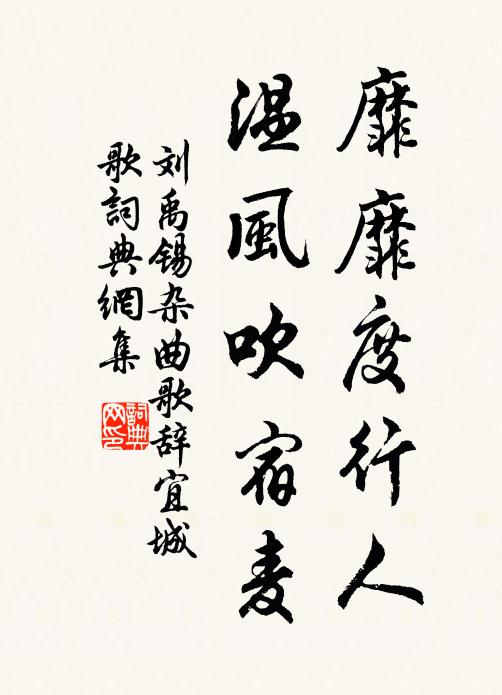 靡靡度行人
温風吹宿麦
刘禹锡杂曲歌辞宜城
歌詞典網集
詞典
网印